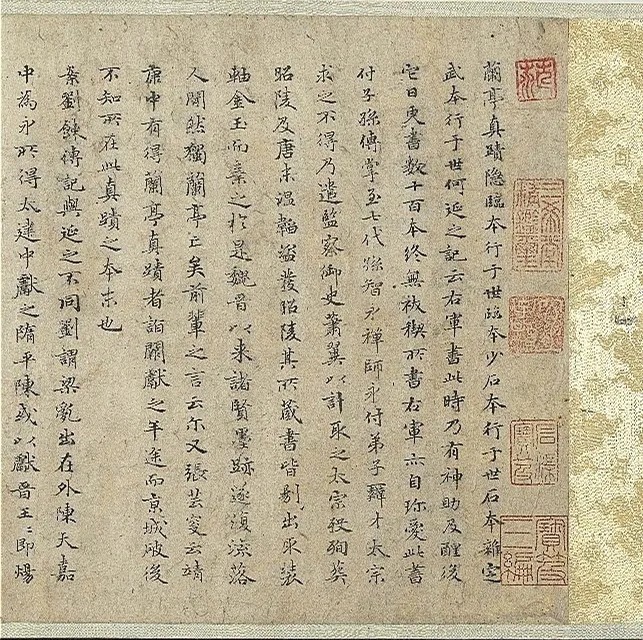 蘭亭真蹟隐臨本行于世臨本少石本行于世石本雜定
武本行于世何延之記云右軍書此時乃有神助及醒後
它日更書數十百本終無祓禊所書右軍亦自珍愛此書
付子孫傳掌至七代孫智永禪師永付弟子辯才太宗
求之不得乃遣監察御史蕭翼以計取之太宗殁殉葬
昭陵及唐末温韜盜發昭陵其所藏書皆剔出取装
軸金玉而棄之於是魏晉以来諸賢墨跡遂復流落
人間然獨蘭亭亡矣前輩之言云尔又張芸叟云靖
康中有得蘭亭真蹟者詣闕獻之半途而京城破後
不知所在此真蹟之本末也
案劉餗傳記與延之不同劉謂梁亂出在外陳天嘉
中為永所得太建中獻之隋平陳或以獻晋王〻即煬
三希堂精鑑璽
宜子孫
石渠寶笈
寶笈三編